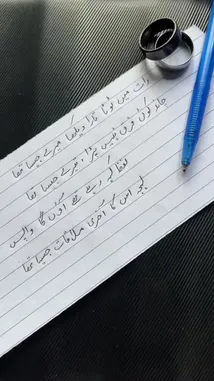 رات میں ٹوٹا تارا دیکھا میرے جیسا تھا
چاند کو کوئی فرق نہیں پڑا، میرے جیسا تھا
لفظ کہہ رہے تھے آؤں گا واپس
لہجہ اس کا آخری ملاقات جیسا تھا